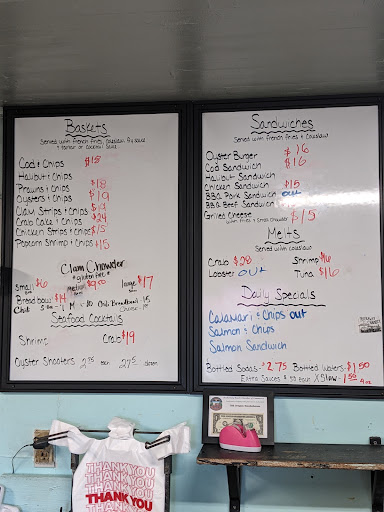 Baskets
Served with French Fries, Coleslaw,
& tartar or Cocktail Sauce
Cod & Chips $18
Halibut & Chips
Prawns & Chips $18
Oysters & Chips $19
Clam Strips & Chips
Crab Cake & Chips $24
Chicken Strips & Chips $15
Popcorn Shrimp & Chips $15
Clam Chowder
*gluten free*
small $6 Medium $9.00 large $17
Bread bowl $14
Seafood Cocktails
Shrimp Crab $19
Oyster Shooters 2.75 each 27.5 dozen
Sandwiches
Served with French Fries & Coleslaw
Oyster Burger $16
Cod Sandwich $16
Halibut Sandwich
Chicken Sandwich $15
BBQ Pork Sandwich out
BBQ Beef Sandwich
Grilled Cheese $15
with Fries & Small Chowder
Melts
Served with coleslaw
Crab $28 Shrimp $16
Lobster out Tuna $16
Daily Specials
Calamari & Chips out
Salmon & Chips
Salmon Sandwich
Bottled Sodas - $2.75 Bottled Waters - $1.50
Extra Sauces
THANK YOU
THANK YOU
THANK YOU